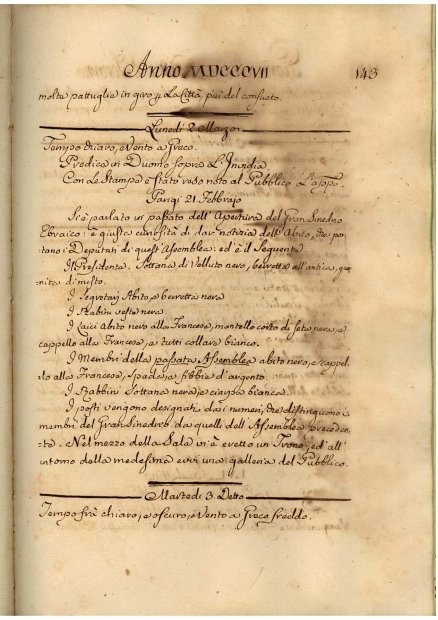 Anno MDCCCVII 143
molte pattuglie in giro p La Città, più del consueto.
Lunedi 2. Marzo
Tempo chiaro, e Vento a Greco.
Predica in Duomo sopra L'Invidia.
Con Le Stampe è stato reso noto al Pubblico L'appo.
Parigi 21. Febbrajo
Si è parlato in passato dell'Apertura del Gran Sinedrio
Ebraico: è giusta curiosità di dar notizia dell'Abito, che por-
tano i Deputati di quest'Assemblea: ed è il Seguente
Il Presidente. Sottana di Velluto nero, berretta all'antica, guar-
nita di
I Segretarj Abito, e berretta nera
I Rabini veste nera
I Laici abito nero alla Francese, mantello corto di seta nera, e
cappello alla Francese, e tutti collare bianco.
I Membri della passata Assemblea abito nero, e cappel-
lo alla Francese, spada, e fibbie d'argento.
I Rabbini Sottana nera, e ciarpa bianca.
I posti vengono designati dai numeri, che distinguono i
membri del Gran Sinedrio da quelli dell'Assemblea preceden-
te. Nel mezzo della Sala vi è eretto un Trono, ed all'
intorno della medesima evvi una galleria del Pubblico.
Martedi 3. Detto
Tempo frà chiaro, e oscuro, e Vento a Greco freddo.